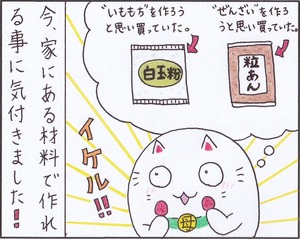 "いももち"を作ろう
と思い買っていた。
"ぜんざい"を作ろ
うと思い買っていた。
白玉粉
粒あん
イケル!!
母
今、家にある材料で作れ
る事に気付きました!!